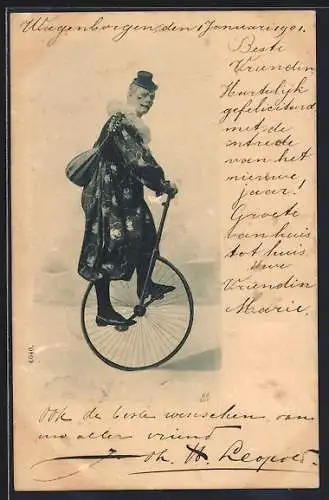 Wagenborgen, den 1 Januari 1901.
Beste
Vriendin
Hartelijk
gefeliciteerd
met de
intrede
van het
nieuwe
jaar!
Groete
van huis
tot huis
Uwe
Vriendin
Marie.
4640.
Ook de beste wenschen van
uw aller vriend
Joh. H. Leopold.